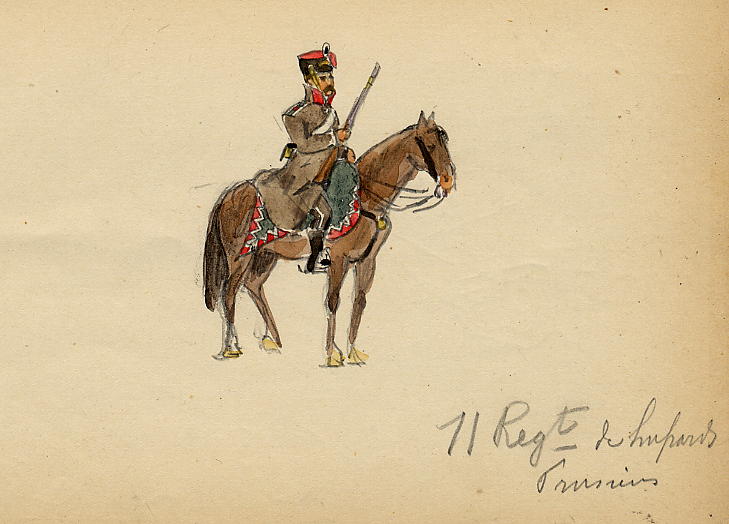 11 Regts de husards
Prusiens